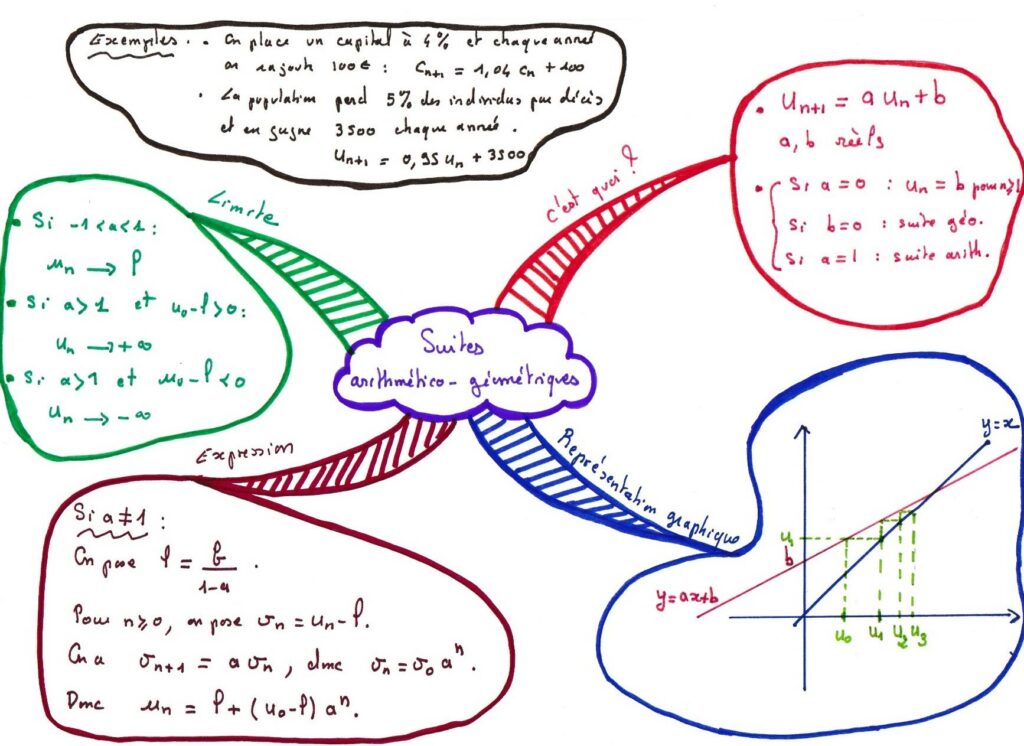 Exemples. . On place un capital à 4% et chaque année
on rajoute 100€ : Cn+1 = 1,04 Cn + 100
. La population perd 5% des individus par décès
et en gagne 3500 chaque année.
Un+1 = 0,95 Un + 3500
Suites
arithmético-géométriques
c'est quoi ?
• Un+1 = a Un + b
a, b réels
• Si a=0 : Un = b pour n≥1
Si b=0 : suite géo.
Si a=1 : suite arith.
Limite
• Si -1<a<1 :
un → l
• Si a>1 et u0-l>0 :
un → +∞
• Si a>1 et u0-l<0
un → -∞
Expression
Si a≠1 :
On pose l = b/(1-a) .
Pour n≥0, on pose vn = un-l.
On a vn+1 = a vn, donc vn = v0 a^n.
Donc un = l + (u0-l) a^n.
Représentation graphique
y=x
u1
b
y=ax+b
u0 u1 u2 u3